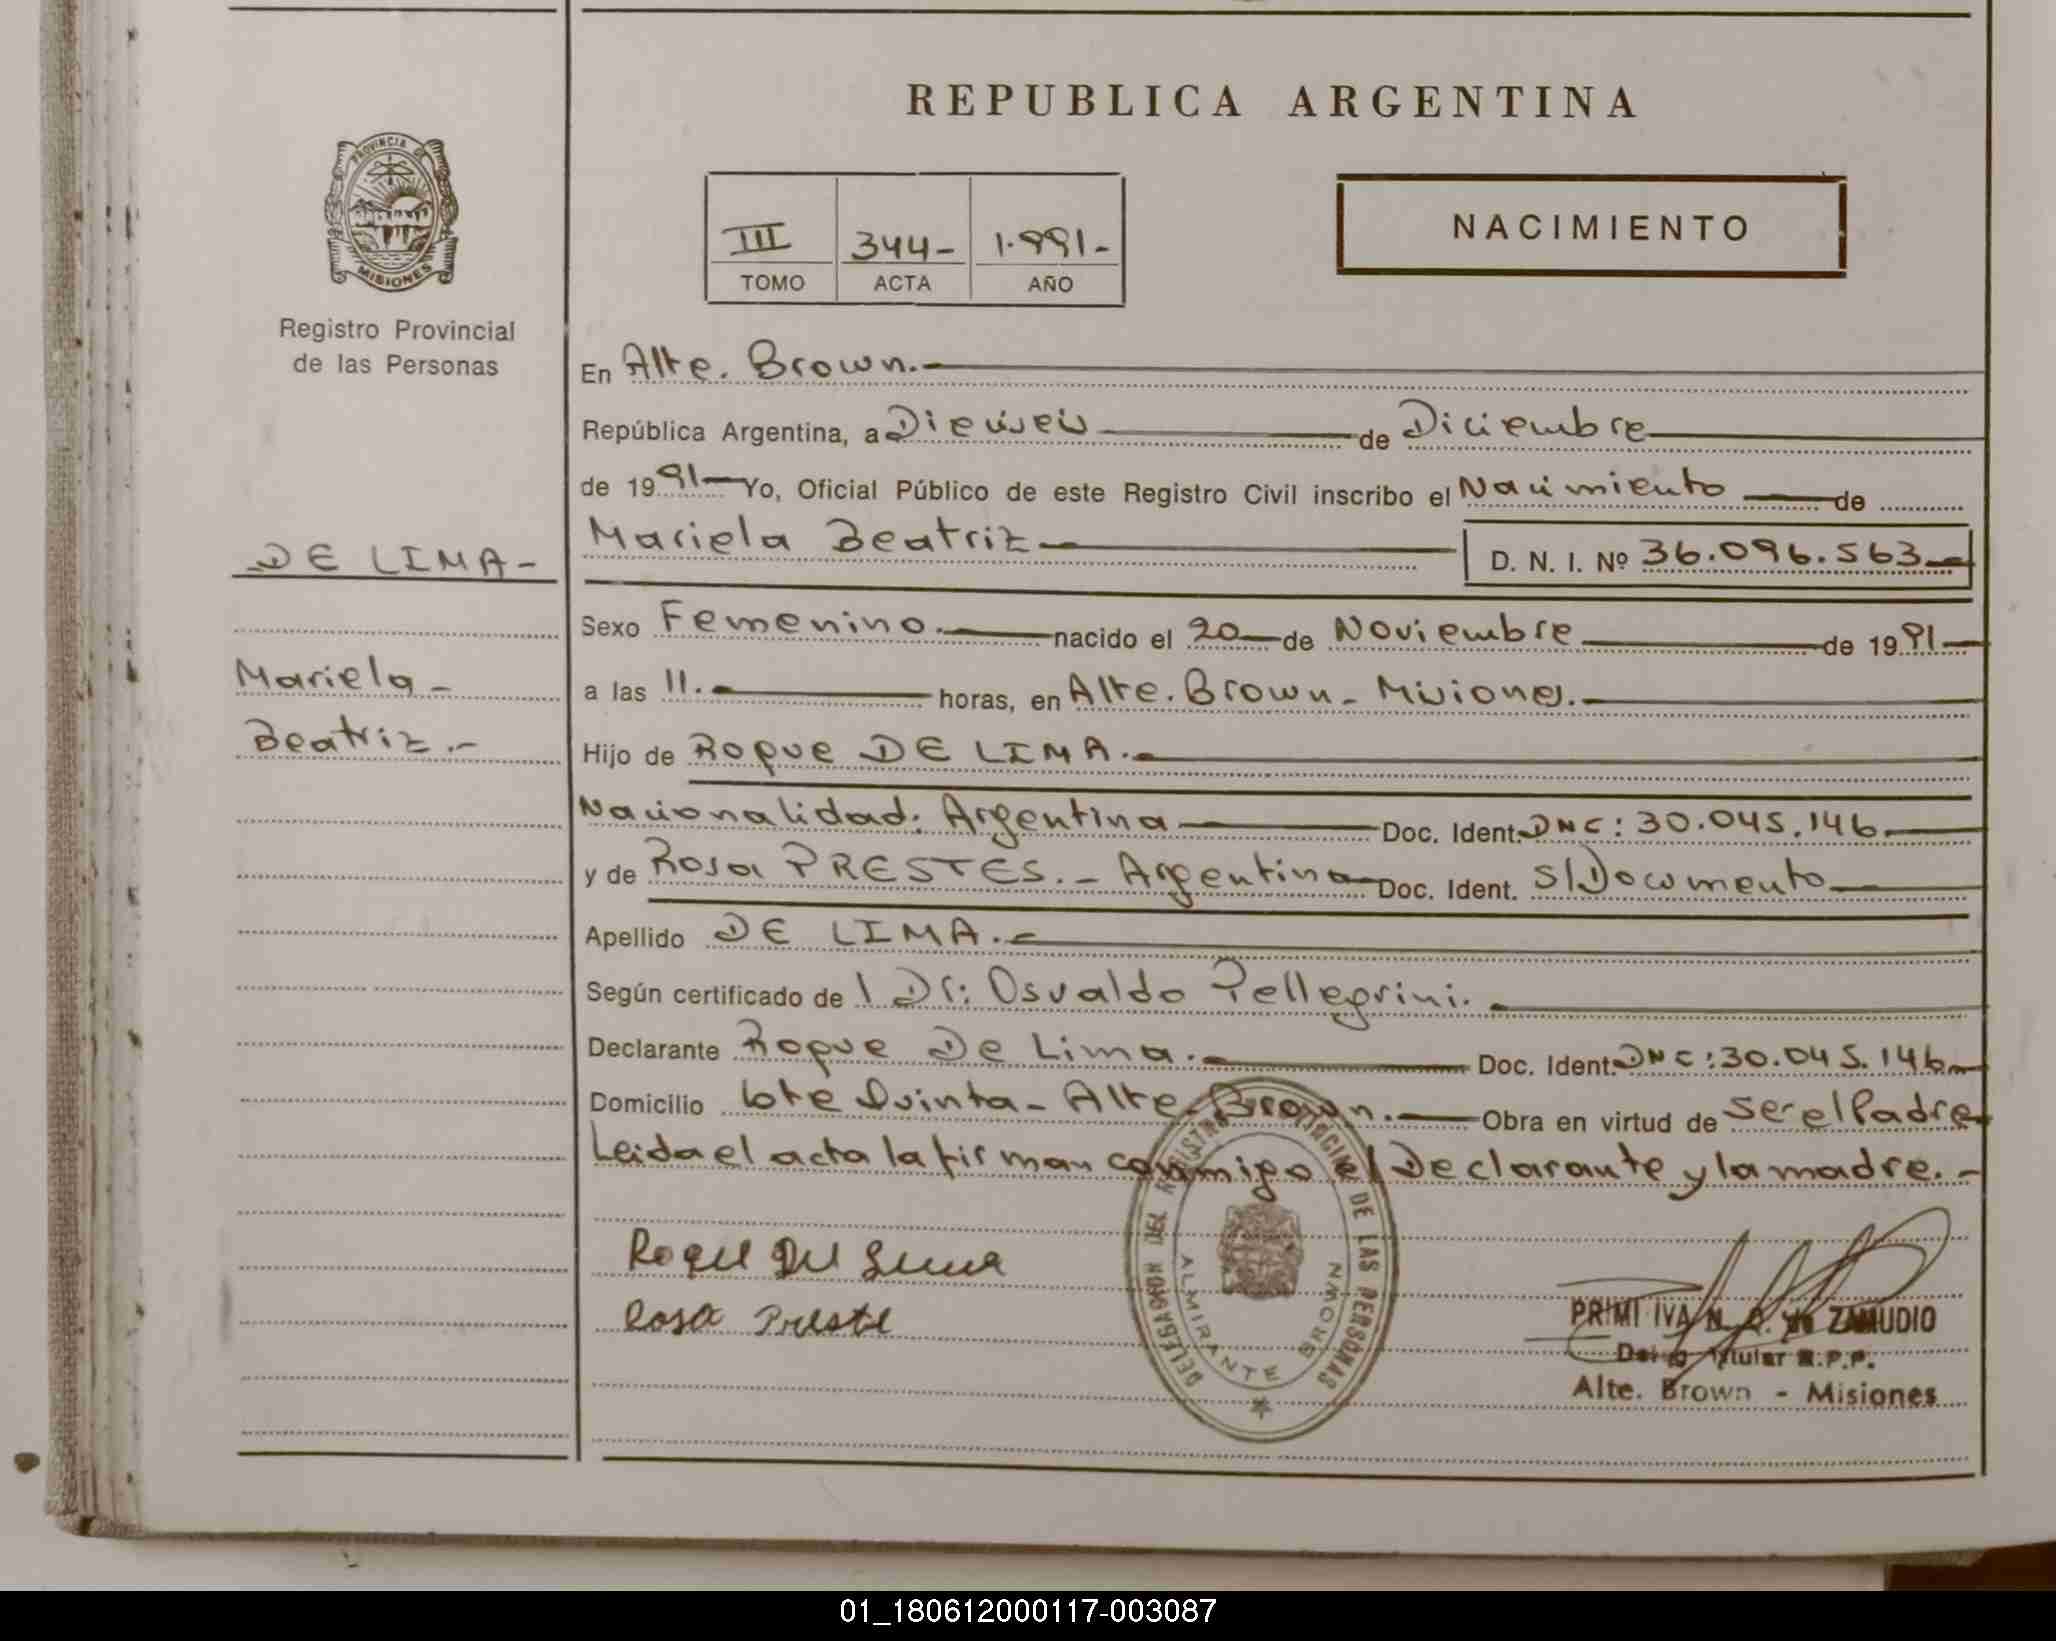 REPUBLICA ARGENTINA
PROVINCIA DE
MISIONES
Registro Provincial
de las Personas
III 344- 1.991-
TOMO ACTA AÑO
NACIMIENTO
En Alte. Brown.-
República Argentina, a Dieciseis de Diciembre
de 1991 Yo, Oficial Público de este Registro Civil inscribo el Nacimiento de
Mariela Beatriz D. N. I. Nº 36.096.563
DE LIMA-
Mariela-
Beatriz.-
Sexo Femenino. nacido el 20 de Noviembre de 1991
a las 11. horas, en Alte. Brown- Misiones.
Hijo de Roque DE LIMA.
Nacionalidad: Argentina Doc. Ident. DNC: 30.045.146
y de Rosa PRESTES.- Argentina Doc. Ident. S/Documento
Apellido DE LIMA.-
Según certificado de l Dr: Osvaldo Pellegrini.
Declarante Roque De Lima. Doc. Ident. DNC: 30.045.146
Domicilio lote Quinta- Alte. Brown. Obra en virtud de Ser el Padre
Leida el acta la firman conmigo el Declarante y la madre.-
Rosa Preste
DELEGACION DEL REGISTRO PROVINCIAL DE LAS PERSONAS
ALMIRANTE BROWN
ZAMUDIO
Titular R.P.P.
Alte. Brown - Misiones
01_180612000117-003087